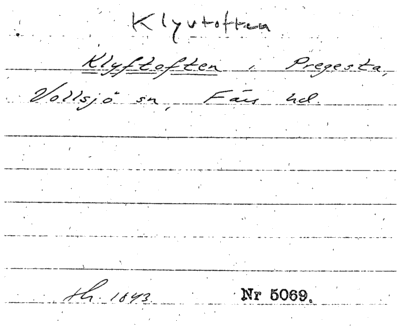 Klyvtoften
Klyftoften i Pregesta,
Vollsjö sn, Färs hd.
sh. 1843 Nr 5069.